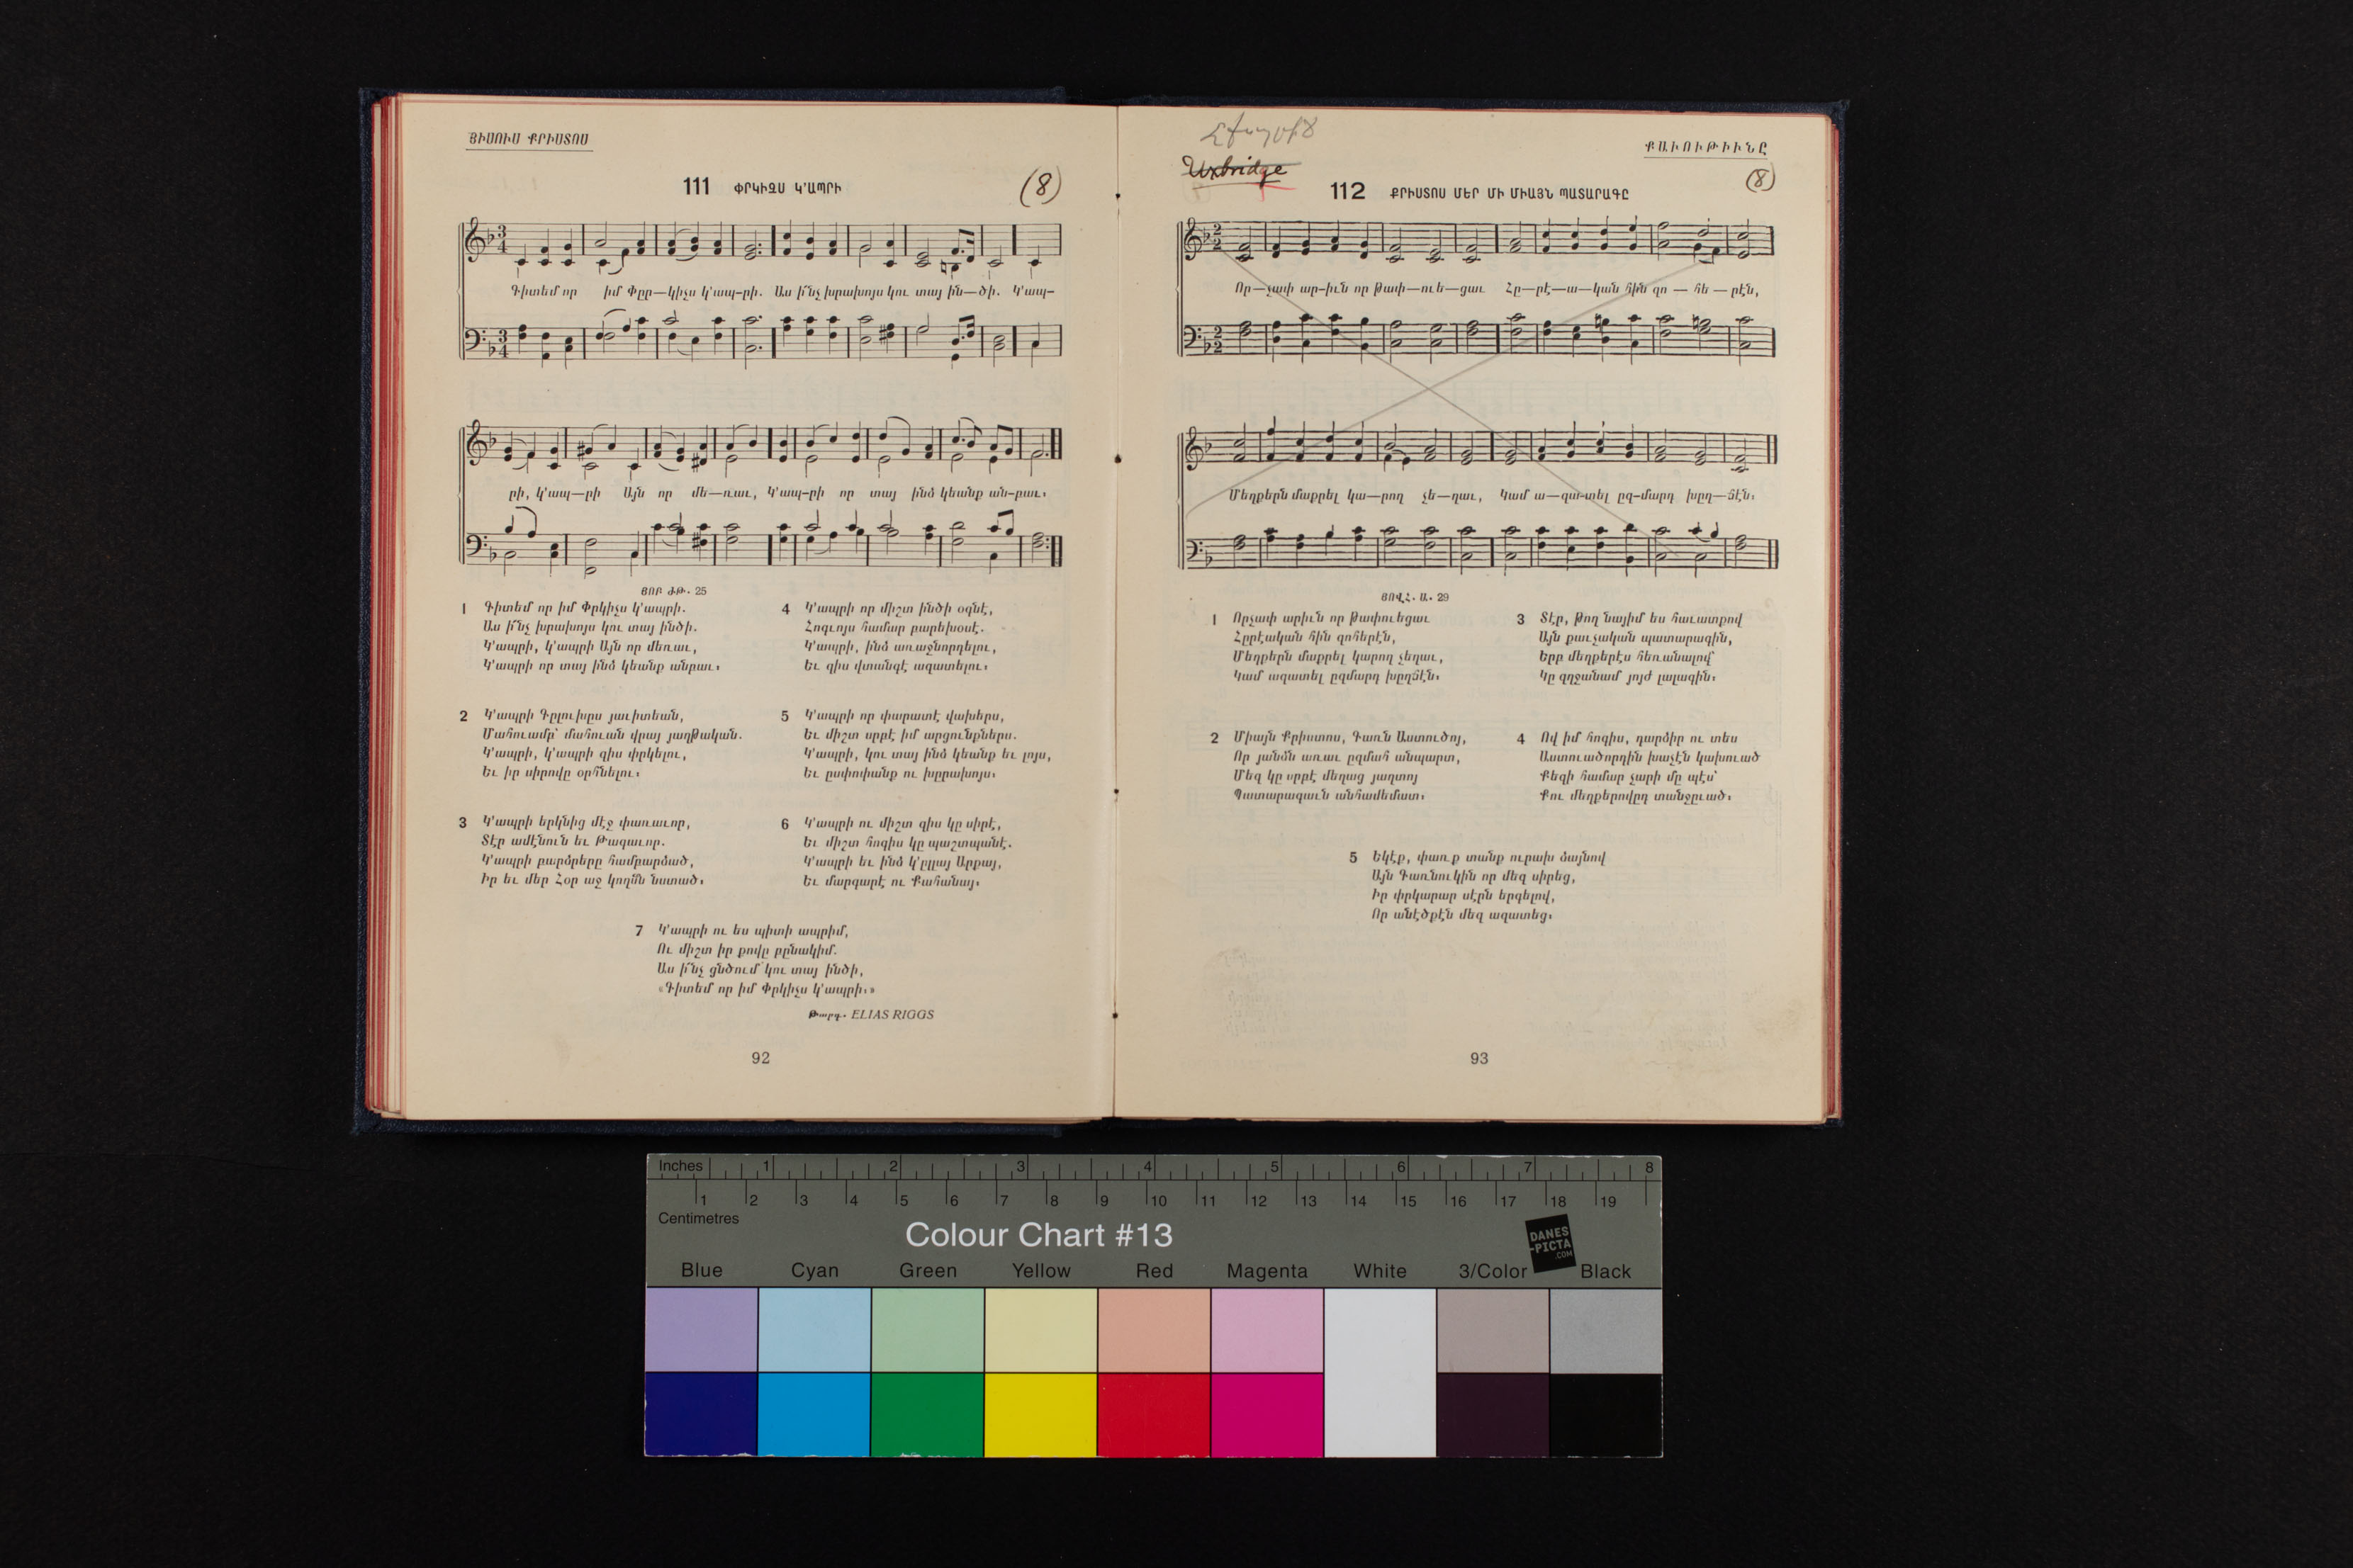 ՅԻՍՈՒՍ ՔՐԻՍՏՈՍ
111 ՓՐԿԻՉՍ Կ՚ԱՊՐԻ
(8)
Գիտեմ որ իմ Փըր—կիչս կ՚ապ—րի. Աս ի՜նչ խրախոյս կու տայ ին—ծի. Կ՚ապ—
րի, կ՚ապ—րի Այն որ մե—ռաւ, Կ՚ապ—րի որ տայ ինձ կեանք ան—բաւ։
ՅՈԲ ԺԹ. 25
1 Գիտեմ որ իմ Փրկիչս կ՚ապրի.
Աս ի՜նչ խրախոյս կու տայ ինծի.
Կ՚ապրի, կ՚ապրի Այն որ մեռաւ,
Կ՚ապրի որ տայ ինձ կեանք անբաւ։
2 Կ՚ապրի Գըլուխըս յաւիտեան,
Մահուամբ՝ մահուան վրայ յաղթական.
Կ՚ապրի, կ՚ապրի զիս փրկելու,
Եւ իր սիրովը օրհնելու։
3 Կ՚ապրի երկնից մէջ փառաւոր,
Տէր ամէնուն եւ Թագաւոր.
Կ՚ապրի բարձրերը համբարձած,
Իր եւ մեր Հօր աջ կողմն նստած։
4 Կ՚ապրի որ միշտ ինծի օգնէ,
Հոգւոյս համար բարեխօսէ.
Կ՚ապրի, ինձ առաջնորդելու,
Եւ զիս վտանգէ ազատելու։
5 Կ՚ապրի որ փարատէ վախերս,
Եւ միշտ սրբէ իմ արցունքներս.
Կ՚ապրի, կու տայ ինձ կեանք եւ լոյս,
Եւ ըսփոփանք ու խըրախոյս։
6 Կ՚ապրի ու միշտ զիս կը սիրէ,
Եւ միշտ հոգիս կը պաշտպանէ.
Կ՚ապրի եւ ինձ կ՚ըլլայ Արքայ,
Եւ մարգարէ ու Քահանայ։
7 Կ՚ապրի ու ես պիտի ապրիմ,
Ու միշտ իր քովը բընակիմ.
Աս ի՜նչ ցնծում կու տայ ինծի,
«Գիտեմ որ իմ Փրկիչս կ՚ապրի։»
Թարգ. ELIAS RIGGS
92
Uxbridge
ՔԱՒՈՒԹԻՒՆԸ
(8)
112 ՔՐԻՍՏՈՍ ՄԵՐ ՄԻ ՄԻԱՅՆ ՊԱՏԱՐԱԳԸ
Որ—չափ ար—իւն որ թափ—ուե—ցաւ Հը—րէ—ա—կան հին զո—հե—րէն,
Մեղքերն մաքրել կա—րող չե—ղաւ, Կամ ա—զա—տել ըզ—մարդ խըղ—ճէն։
ՅՈՎՀ. Ա. 29
1 Որչափ արիւն որ թափուեցաւ
Հըրէական հին զոհերէն,
Մեղքերն մաքրել կարող չեղաւ,
Կամ ազատել ըզմարդ խըղճէն։
2 Միայն Քրիստոս, Գառն Աստուծոյ,
Որ յանձն առաւ ըզմահ անպարտ,
Մեզ կը սրբէ մեղաց յաղտոյ
Պատարագաւն անհամեմատ։
3 Տէր, թող նայիմ ես հաւատքով
Այն քաւչական պատարագին,
Երբ մեղքերէս հեռանալով՝
Կը զղջանամ յոյժ լալագին։
4 Ով իմ հոգիս, դարձիր ու տես
Աստուածորդին խաչէն կախուած
Քեզի համար չարի մը պէս՝
Քու մեղքերովըդ տանջըւած։
5 Եկէք, փառք տանք ուրախ ձայնով
Այն Գառնուկին որ մեզ սիրեց,
Իր փրկարար սէրն երգելով,
Որ անէծքէն մեզ ազատեց։
93
Inches 1 2 3 4 5 6 7 8
1 2 3 4 5 6 7 8 9 10 11 12 13 14 15 16 17 18 19
Centimetres
Colour Chart #13
DANES
-PICTA
.COM
Blue Cyan Green Yellow Red Magenta White 3/Color Black